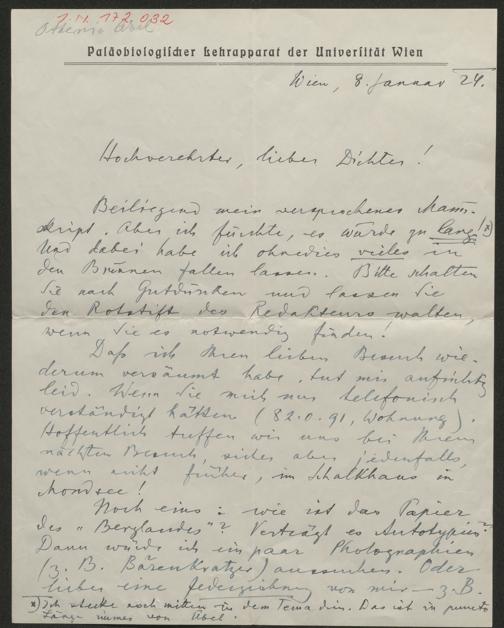 I.N. 172.032
Othenio Abel
Paläobiologischer Lehrapparat der Universität Wien
Wien, 8. Januar 24.
Hochverehrter, lieber Dichter!
Beiliegend mein versprochenes Manu-
skript. Aber ich fürchte, es wurde zu lang! x)
Und dabei habe ich ohnedies vieles in
den Brunnen fallen lassen. Bitte schalten
Sie nach Gutdünken und lassen Sie
den Rotstift des Redakteurs walten,
wenn Sie es notwendig finden!
Daß ich Ihren lieben Besuch wie-
derum versäumt habe, tut mir aufrichtig
leid. Wenn Sie mich nur telefonisch
verständigt hätten (82.0.91, Wohnung).
Hoffentlich treffen wir uns bei Ihrem
nächsten Besuch, sicher aber jedenfalls,
wenn nicht früher, im Schalkhaus in
Mondsee!
Noch eins: wie ist das Papier
des "Berglandes"? Verträgt es Autotypien?
Dann würde ich ein paar Photographien
(z. B. Bärenkratzer) aussuchen. Oder
lieber eine Federzeichnung von mir - z. B.
x) Ich stecke noch mitten in dem Tema drin. Das ist in puncto
Länge immer von Übel.